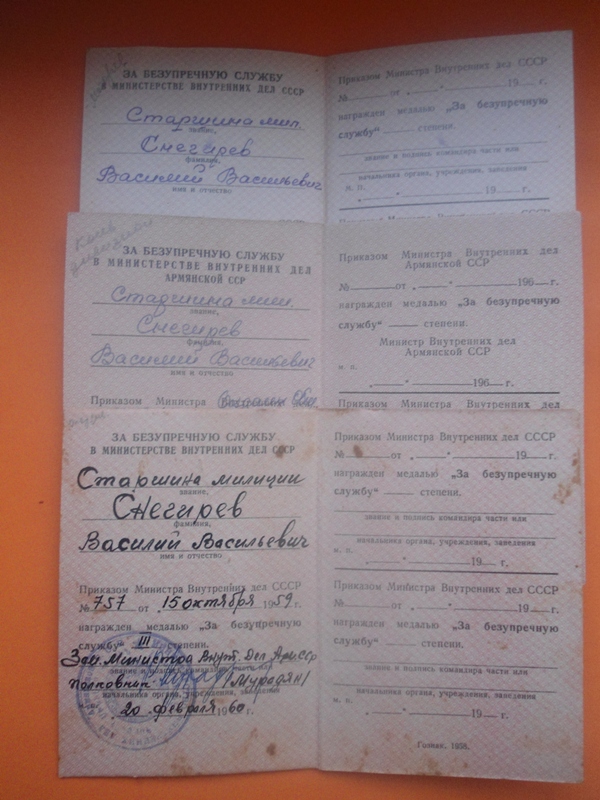 ЗА БЕЗУПРЕЧНУЮ СЛУЖБУ
В МИНИСТЕРСТВЕ ВНУТРЕННИХ ДЕЛ СССР
Старшина мил.
звание,
Снегирев
фамилия,
Василий Васильевич
имя и отчество
Приказом Министра Внутренних дел СССР
№ от „ “ 19 г.
награжден медалью „За безупречную
службу“ степени.
звание и подпись командира части или
начальника органа, учреждения, заведения
м. п.
„ “ 19 г.
ЗА БЕЗУПРЕЧНУЮ СЛУЖБУ
В МИНИСТЕРСТВЕ ВНУТРЕННИХ ДЕЛ
АРМЯНСКОЙ ССР
Старшина мил.
звание,
Снегирев
фамилия,
Василий Васильевич
имя и отчество
Приказом Министра
Приказом Министра Внутренних дел
Армянской ССР
№ от „ “ 196 г.
награжден медалью „За безупречную
службу“ степени.
Министр Внутренних дел
Армянской ССР
м. п.
„ “ 196 г.
Приказом Министра Внутренних дел
ЗА БЕЗУПРЕЧНУЮ СЛУЖБУ
В МИНИСТЕРСТВЕ ВНУТРЕННИХ ДЕЛ СССР
Старшина милиции
звание,
Снегирев
фамилия,
Василий Васильевич
имя и отчество
Приказом Министра Внутренних дел СССР
№ 757 от 15 октября 1959 г.
награжден медалью „За безупречную
службу“ III степени.
Зам. Министра Внут. Дел Арм.ССР
звание и подпись командира части или
полковник /Мурадян/
начальника органа, учреждения, заведения
20 февраля 1960
Приказом Министра Внутренних дел СССР
№ от „ “ 19 г.
награжден медалью „За безупречную
службу“ степени.
звание и подпись командира части или
начальника органа, учреждения, заведения
м. п.
„ “ 19 г.
Приказом Министра Внутренних дел СССР
№ от „ “ 19 г.
награжден медалью „За безупречную
службу“ степени.
звание и подпись командира части или
начальника органа, учреждения, заведения
м. п.
„ “ 19 г.
Гознак. 1958.